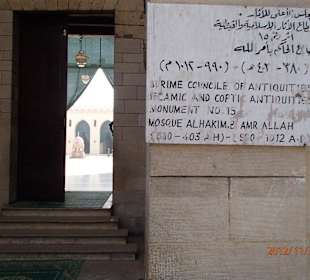 المجلس الأعلى للآثار
قطاع الآثار الإسلامية والقبطية
أثر رقم ١٥
جامع الحاكم بأمر الله
(٣٨٠ - ٤٠٣ هـ) - (٩٩٠ - ١٠١٢ م)
SUPRIME COUNCILE OF ANTIQUITIES
ISLAMIC AND COPTIC ANTIQUITIES
MONUMENT NO. 15
MOSQUE ALHAKIM.B AMR ALLAH
(380-403 A.H)-(990-1012 A.D
2012/11/